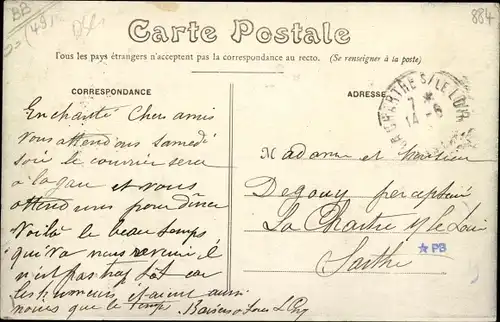 BB
884
Carte Postale
Tous les pays étrangers n'acceptent pas la correspondance au recto. (Se renseigner à la poste)
CORRESPONDANCE
ADRESSE
CHARTRE S/ LE LOIR
7 *
14 - 6
Enchanté Chers amis
Vous attendons samedi
soir le courrier sera
à la gare et vous
attend pour dîner
Voilà le beau temps
qui va nous revenir il
n'est pas trop tôt car
les humeurs étaient aussi
noires que le temps. Baisers à tous
Madame et Monsieur
Degouy percepteur
La Chartre s/ le Loir
Sarthe
* PB